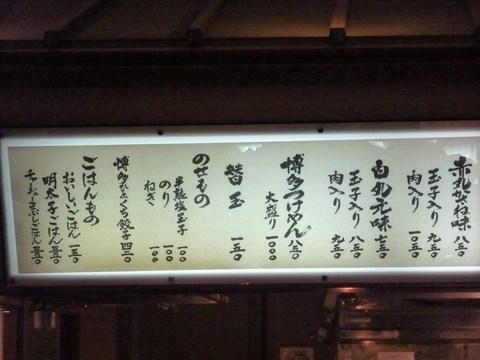 赤丸かさね味 八五〇
玉子入り 九五〇
肉入り 一〇五〇
白丸元味 七五〇
玉子入り 八五〇
肉入り 九五〇
博多つけめん 八五〇
大盛り 一〇〇
替玉 一五〇
のせもの
半熟塩玉子 一〇〇
のり 一〇〇
ねぎ 一〇〇
博多ひとくち餃子 四二〇
ごはんもの
おいしいごはん 一五〇
明太子ごはん 三五〇